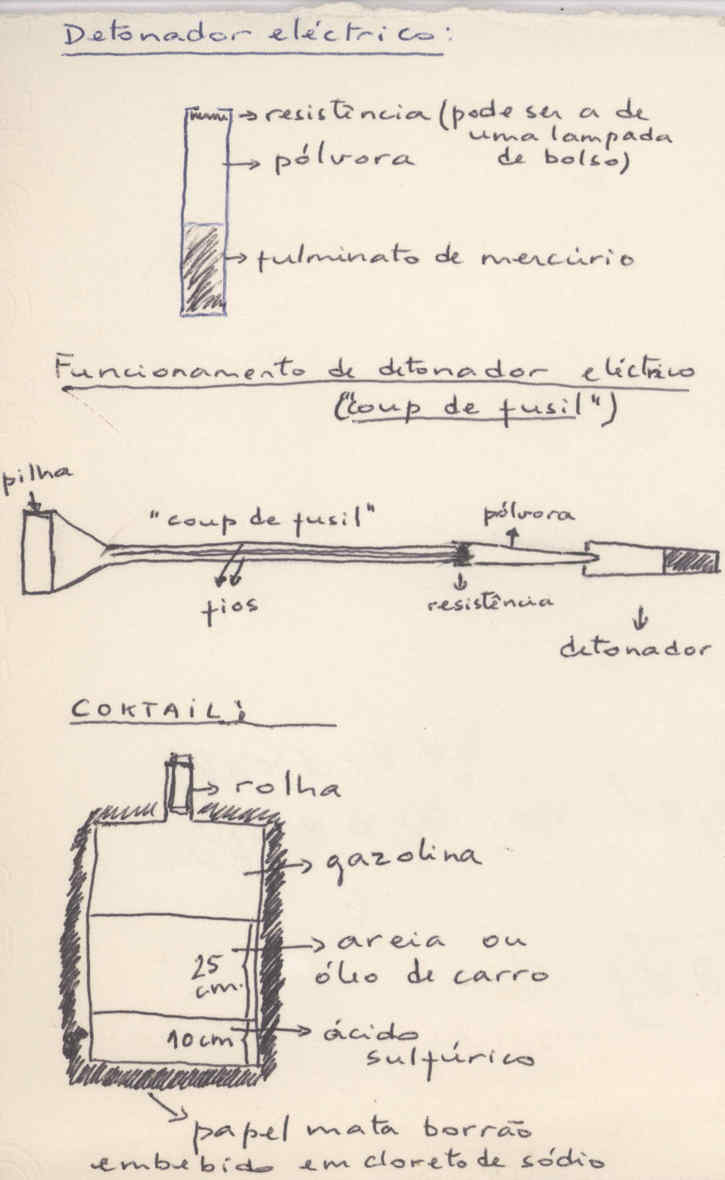 Detonador eléctrico:
resistência (pode ser a de
uma lampada
de bolso)
pólvora
fulminato de mercúrio
Funcionamento de detonador eléctrico
("coup de fusil")
pilha
"coup de fusil"
pólvora
fios
resistência
detonador
COKTAIL:
rolha
gazolina
areia ou
óleo de carro
25
cm.
10cm
ácido
sulfúrico
papel mata borrão
embebido em cloreto de sódio